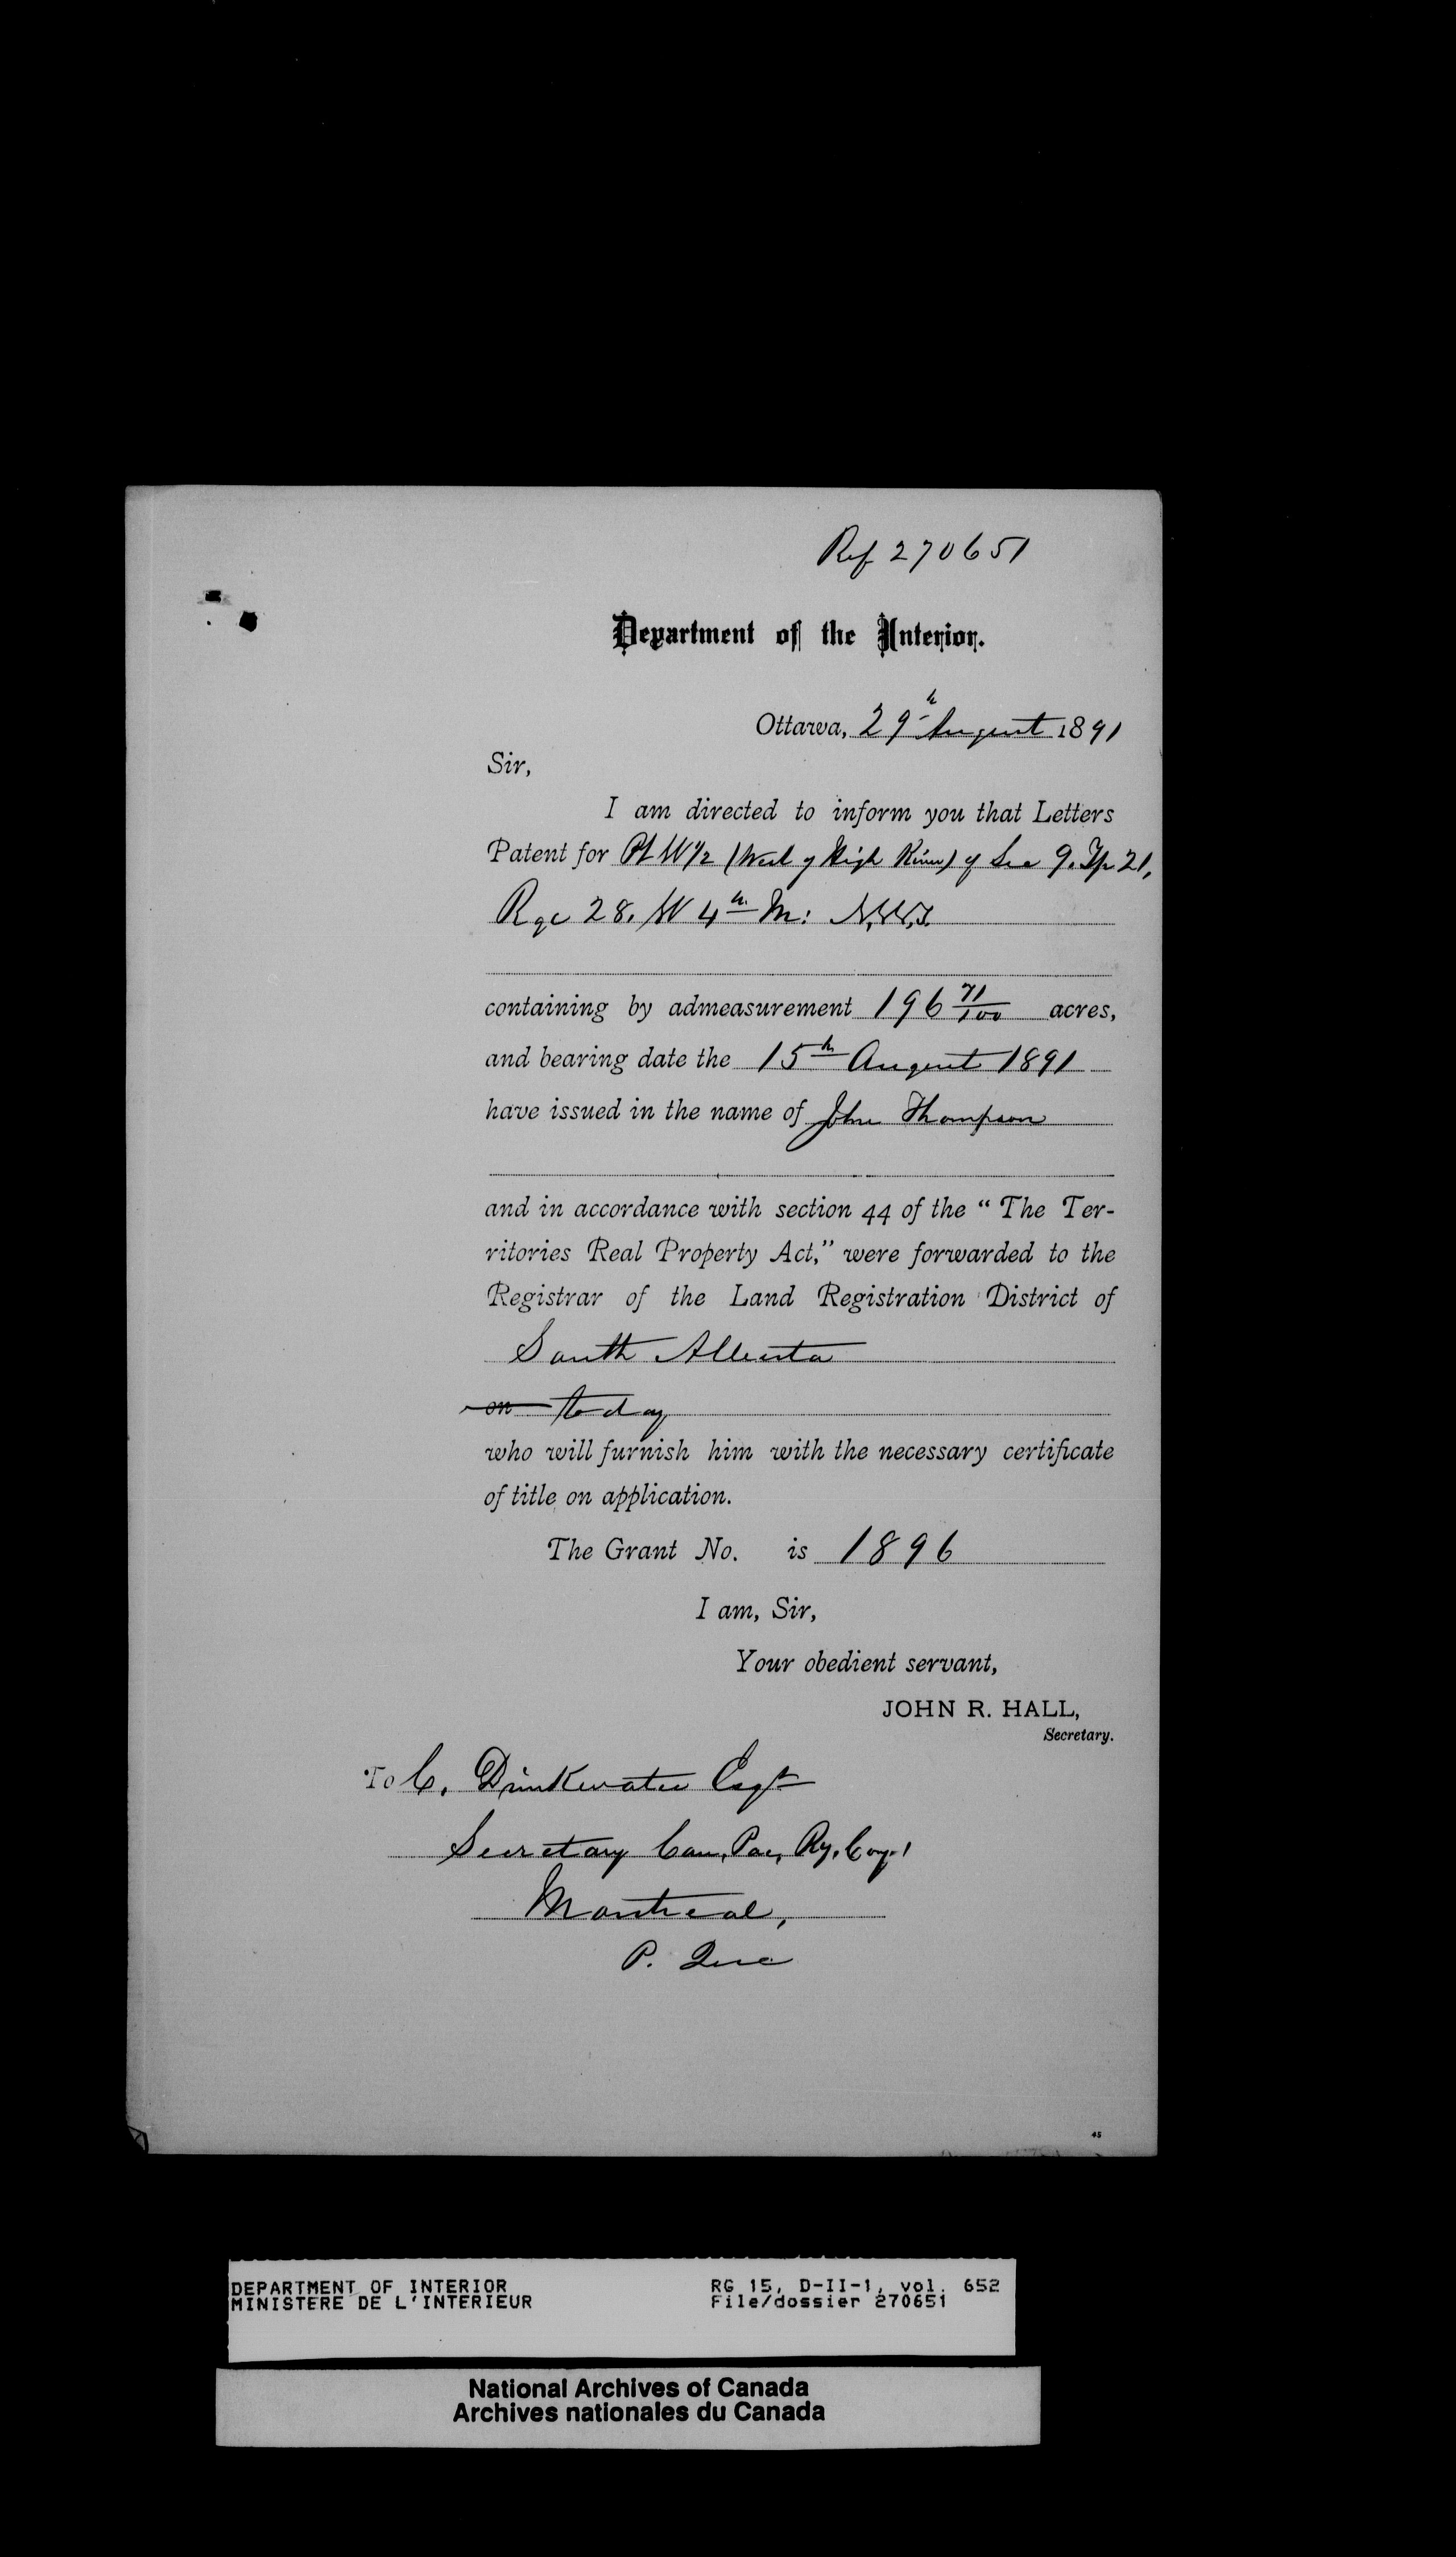 Ref 270651
Department of the Interior.
Ottawa, 29th August 1891
Sir,
I am directed to inform you that Letters
Patent for Pt W 1/2 (West of High River) of Sec 9. Tp 21,
Rge 28. W 4th M: N.W.T.
containing by admeasurement 196 71/100 acres,
and bearing date the 15th August 1891
have issued in the name of John Thompson
and in accordance with section 44 of the “ The Ter-
ritories Real Property Act,” were forwarded to the
Registrar of the Land Registration District of
South Alberta
on today
who will furnish him with the necessary certificate
of title on application.
The Grant No. is 1896
I am, Sir,
Your obedient servant,
JOHN R. HALL,
Secretary.
To C. Drinkwater Esqr
Secretary Can. Pac. Ry. Coy.
Montreal,
P. Que
45
DEPARTMENT OF INTERIOR RG 15, D-II-1, vol. 652
MINISTERE DE L'INTERIEUR File/dossier 270651
National Archives of Canada
Archives nationales du Canada